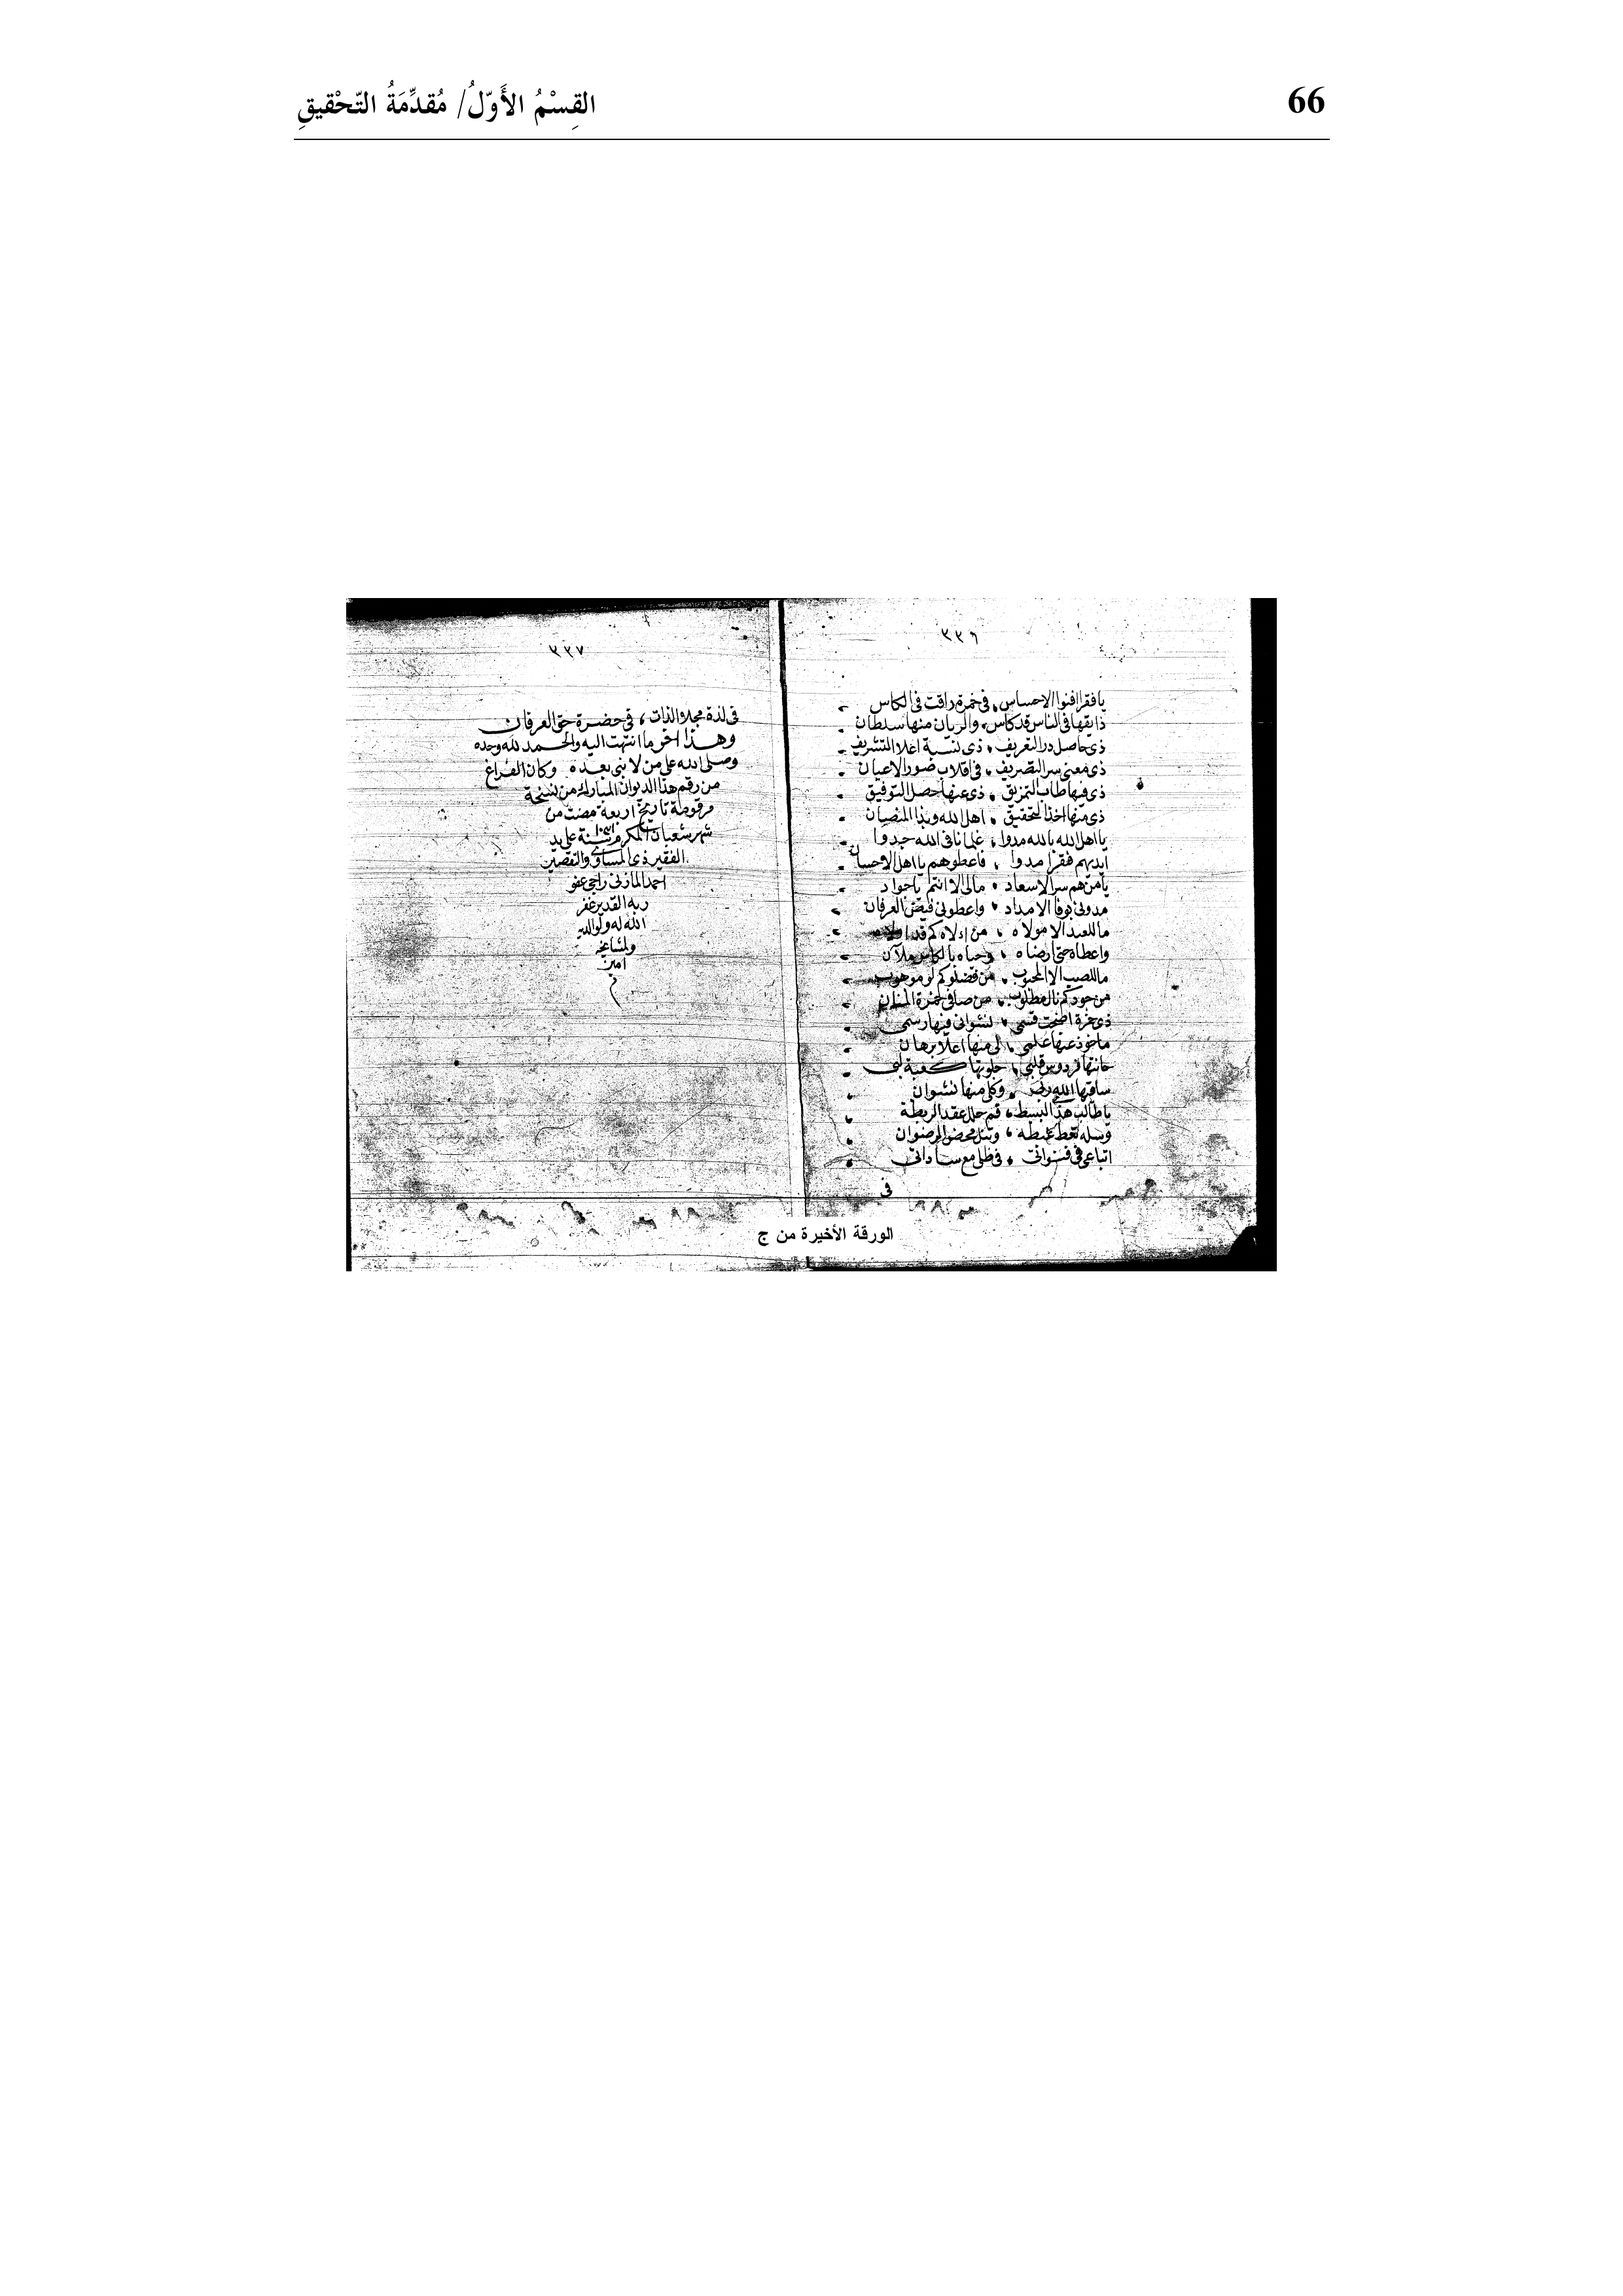 66
القِسْمُ الأَوّلُ/ مُقدِّمَةُ التّحْقيقِ
٢٢٦
يا فقرا افنوا الاحساس، في خمرة راقت في الكاس
ذايقها في الناس قد كاس، والريان منها سلطان
ذي حاصل در التعريف، ذي نسبة اعلا التشريف
ذي معنى سر التصريف، في اقلاب صور الاعيان
ذي فيها طاب التمزيق، ذي عنها حصل التوفيق
ذي منها اخذ التحقيق، اهل الله وبذا
يا اهل الله بالله مدوا، غلمانا في الله جدوا
ايديهم فقرا مدوا، فاعطوهم يا اهل الاحسان
يا من هم سر الاسعاد، مالي الا انتم يا جواد
مدوني بوفا الامداد، واعطوني فيض العرفان
ما للعبد الا مولاه، من
واعطاه حتى ارضاه، وحباه بالكاس ملآن
ما للصب الا المحبوب، من
من جودكم نال مطلوب، من صافي خمرة المنان
ذي خمرة
ماخوذ عنها علمي، لي منها اعلا برهان
حانتها فردوس قلبي، جلوتها كعبة لبي
ساقيها الله ربي، وكلي منها نشوان
يا طالب هذا البسط، قم حل عقد الربطة
وسله تعط غبطه، وتنل محض الرضوان
اتباعي في، في ظلي مع ساداتي
في
٢٢٧
في لذة مجلا الذات، في حضرة حق العرفان
وهذا اخر ما انتهت اليه والحمد لله وحده
وصلى الله على من لا نبي بعده وكان الفراغ
من رقم هذا الديوان المبارك من نسخة
مرقومة تاريخ اربعة مضت من
شهر شعبان المكرم سنة على يد
الفقير ذي المساوي والتقصير
احمد المازني راجي عفو
ربه القدير غفر
الله له ولوالديه
ولمشايخه
امين
م
الورقة الأخيرة من ج